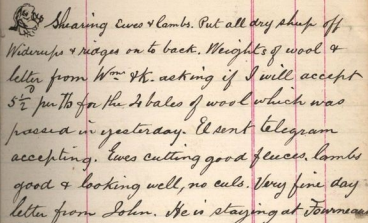 Shearing Ewes & lambs. Put all dry sheep off
& ridges on to back. Weights of wool &
letter from Wms & K. asking if I will accept
5½ᴰ per lb for the 4 bales of wool which was
passed in yesterday. El sent telegram
accepting. Ewes cutting good fleeces, lambs
good & looking well, no culs. Very fine day
letter from John. He is staying at